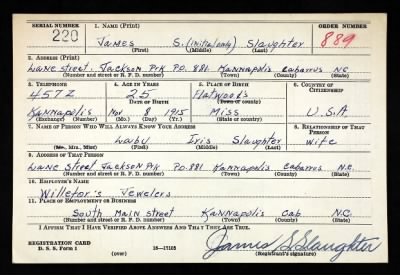 SERIAL NUMBER 1. NAME (Print) ORDER NUMBER
220 James S. (initial only) Slaughter 889
(First) (Middle) (Last)
2. ADDRESS (Print)
Lane Street. Jackson Prk P.O. 881 Kannapolis Cabarrus N.C.
(Number and street or R. F. D. number) (Town) (County) (State)
3. TELEPHONE 4. AGE IN YEARS 5. PLACE OF BIRTH 6. COUNTRY OF CITIZENSHIP
457Z 25 Flatwoods
DATE OF BIRTH (Town or county)
Kannapolis Nov 8 1915 Miss U.S.A
(Exchange) (Number) (Mo.) (Day) (Yr.) (State or country)
7. NAME OF PERSON WHO WILL ALWAYS KNOW YOUR ADDRESS 8. RELATIONSHIP OF THAT PERSON
Iris Slaughter Wife
(Mr., Mrs., Miss) (First) (Middle) (Last)
9. ADDRESS OF THAT PERSON
Lane Street Jackson Prk P.O. 881 Kannapolis Cabarrus N.C.
(Number and street or R. F. D. number) (Town) (County) (State)
10. EMPLOYER'S NAME
Jewelers
11. PLACE OF EMPLOYMENT OR BUSINESS
South Main Street Kannapolis Cab N.C.
(Number and street or R. F. D. number) (Town) (County) (State)
I AFFIRM THAT I HAVE VERIFIED ABOVE ANSWERS AND THAT THEY ARE TRUE.
REGISTRATION CARD
D. S. S. Form 1 (over) 16—17105 James S Slaughter
(Registrant's signature)